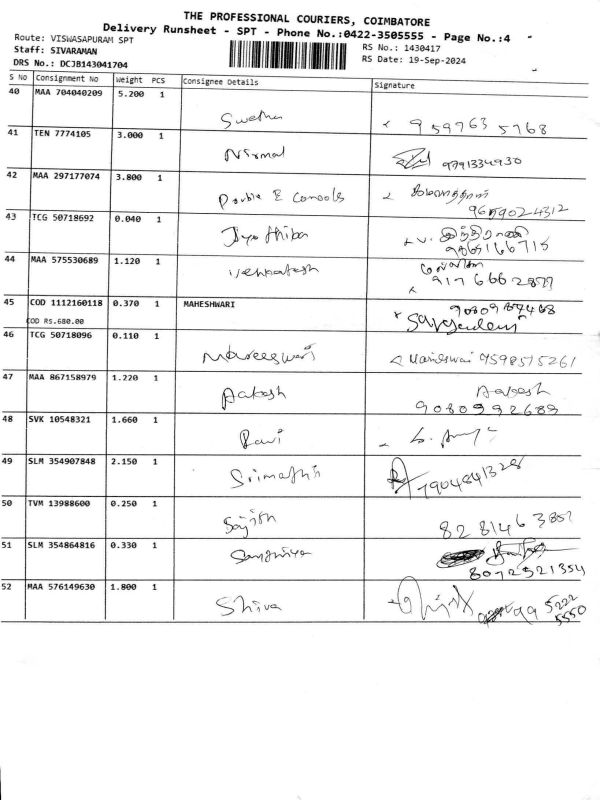 THE PROFESSIONAL COURIERS, COIMBATORE
Delivery Runsheet - SPT - Phone No.:0422-3505555 - Page No.:4
Route: VISWASAPURAM SPT
RS No.: 1430417
Staff: SIVARAMAN
RS Date: 19-Sep-2024
DRS No.: DCJB143041704
S No Consignment No Weight PCS Consignee Details Signature
40 MAA 704040209 5.200 1
Swetha 9597635768
41 TEN 7774105 3.000 1
Nirmal 9791334930
42 MAA 297177074 3.800 1
Double E Consols
9659024312
43 TCG 50718692 0.040 1
Jyothiba இந்திராணி
9865166715
44 MAA 575530689 1.120 1
Venkatesh
9176662877
45 COD 1112160118 0.370 1 MAHESHWARI
COD Rs.680.00
46 TCG 50718096 0.110 1
Mareeswari Marieswari 9598575261
47 MAA 867158979 1.220 1
Aakash Aakash
9080992689
48 SVK 10548321 1.660 1
Ravi
49 SLM 354907848 2.150 1
Srimathi 7904841328
50 TVM 13988600 0.250 1
Sajith 8281463857
51 SLM 354864816 0.330 1
Sandhiya
8072521354
52 MAA 576149630 1.800 1
Shiva 99 5222
5550